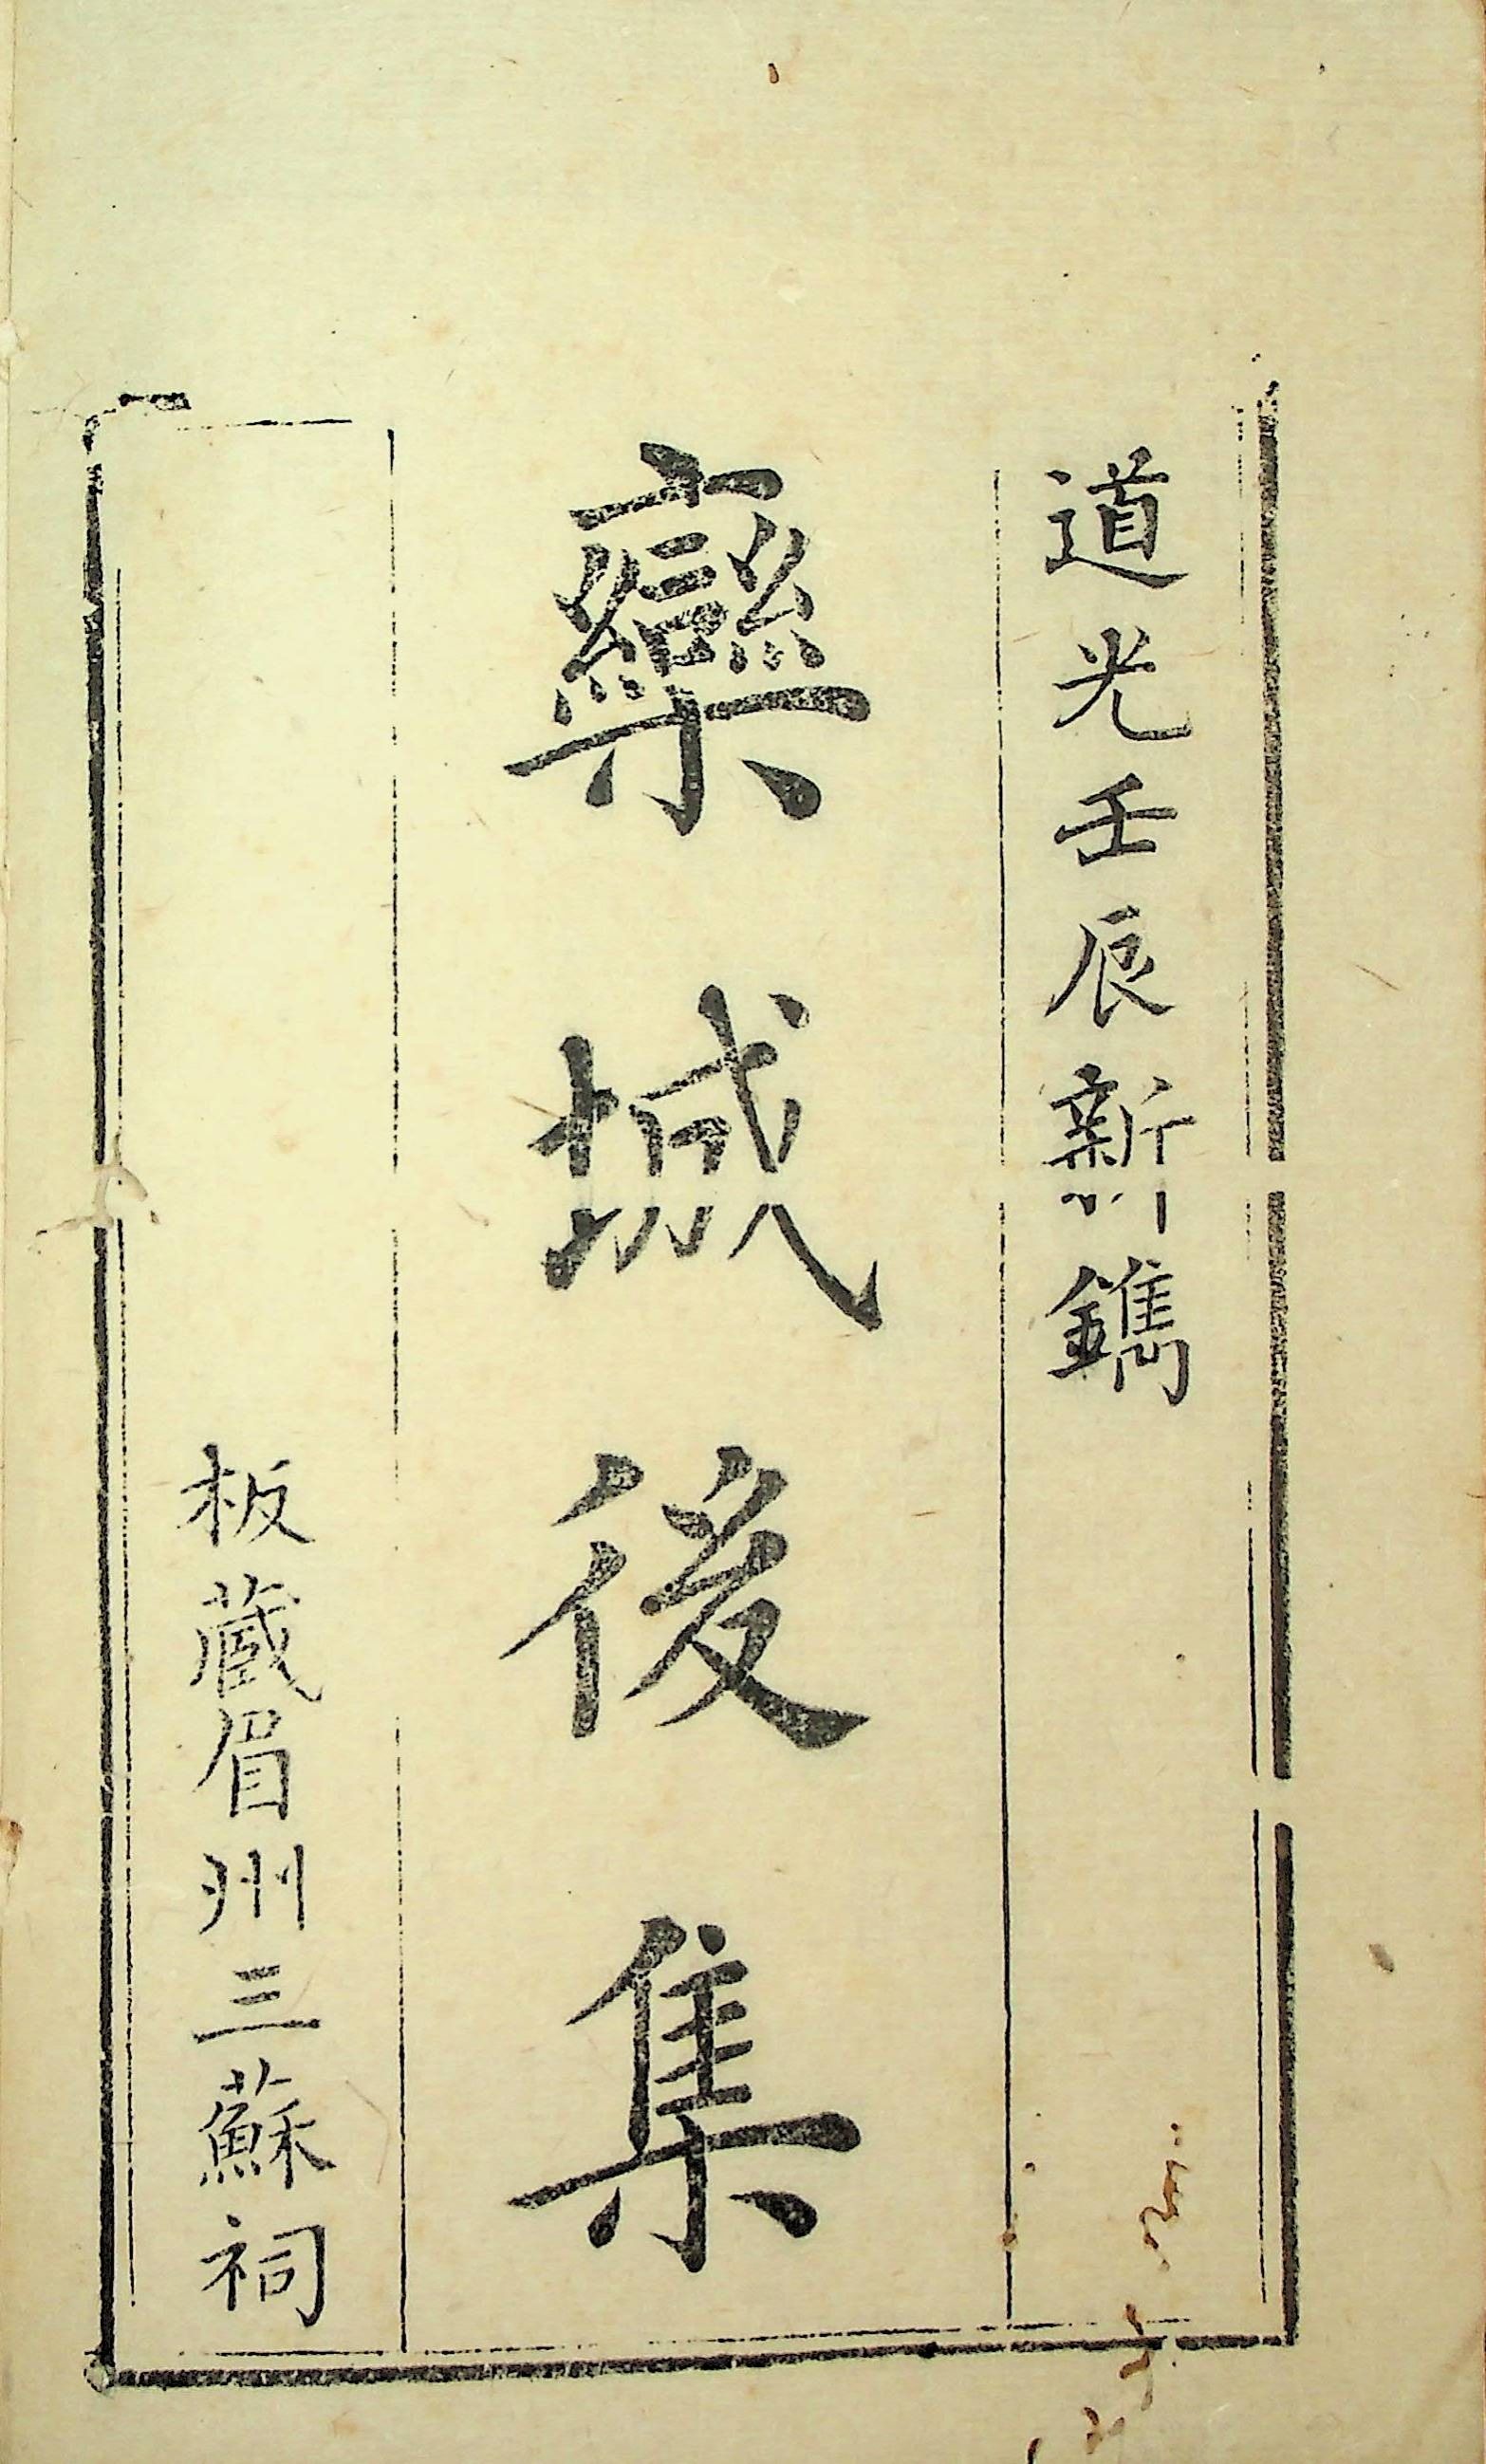 道光壬辰新鐫
欒城後集
板藏眉州三蘇祠